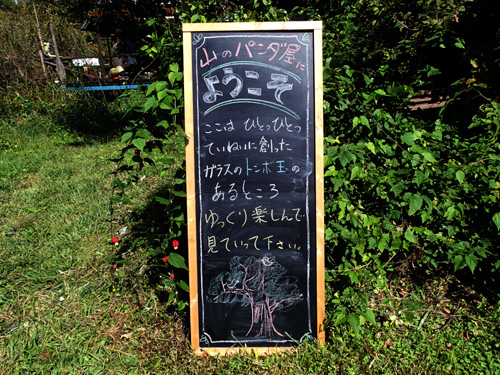 山のパンダ屋に
ようこそ
ここは ひとつひとつ
ていねいに創った
ガラスのトンボ玉の
あるところ
ゆっくり楽しんで
見ていって下さい。